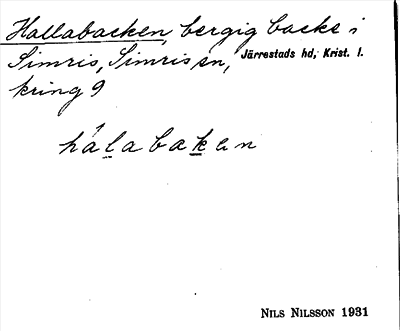 Hallabacken, bergig backe i
Simris, Simris sn, Järrestads hd, Krist. l.
kring 9
hálabakan
NILS NILSSON 1931